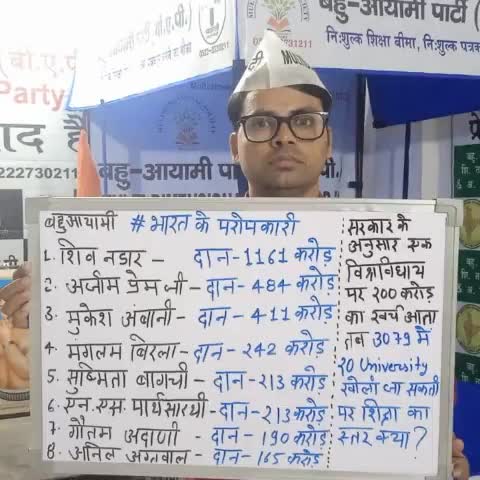 बहु-आयामी पार्टी (
निःशुल्क शिक्षा बीमा, निःशुल्क पत्रक
बी.ए.पी.)
Party
बहु-आयामी पा
बहुआयामी #भारत के परोपकारी
1. शिव नडार - दान-1161 करोड़
2. अजीम प्रेम जी - दान-484 करोड़
3. मुकेश अंबानी - दान-411 करोड़
4. मंगलम बिरला - दान-242 करोड़
5. सुष्मिता बागची - दान-213 करोड़
6. एन.एस. पार्थसारथी - दान-213 करोड़
7. गौतम अदाणी - दान-190 करोड़
8. अनिल अग्रवाल - दान-165 करोड़
सरकार के
अनुसार एक
विश्वविधाय
पर 200 करोड़
का खर्च आता
तब 3079 में
20 University
खोली जा सकती
पर शिक्षा का
स्तर क्या?